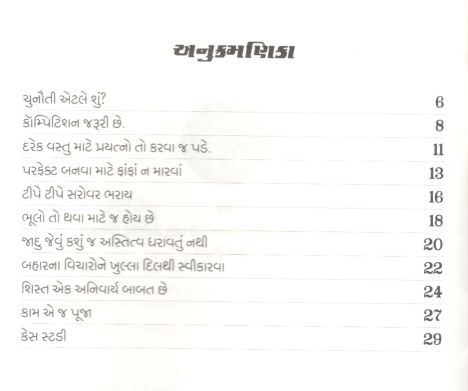 અનુક્રમણિકા
ચુનૌતી એટલે શું? 6
કૉમ્પિટિશન જરૂરી છે. 8
દરેક વસ્તુ માટે પ્રયત્નો તો કરવા જ પડે. 11
પરફેક્ટ બનવા માટે ફાંફાં ન મારવાં 13
ટીપે ટીપે સરોવર ભરાય 16
ભૂલો તો થવા માટે જ હોય છે 18
જાદુ જેવું કશું જ અસ્તિત્વ ધરાવતું નથી 20
બહારના વિચારોને ખુલ્લા દિલથી સ્વીકારવા 22
શિસ્ત એક અનિવાર્ય બાબત છે 24
કામ એ જ પૂજા 27
કેસ સ્ટડી 29